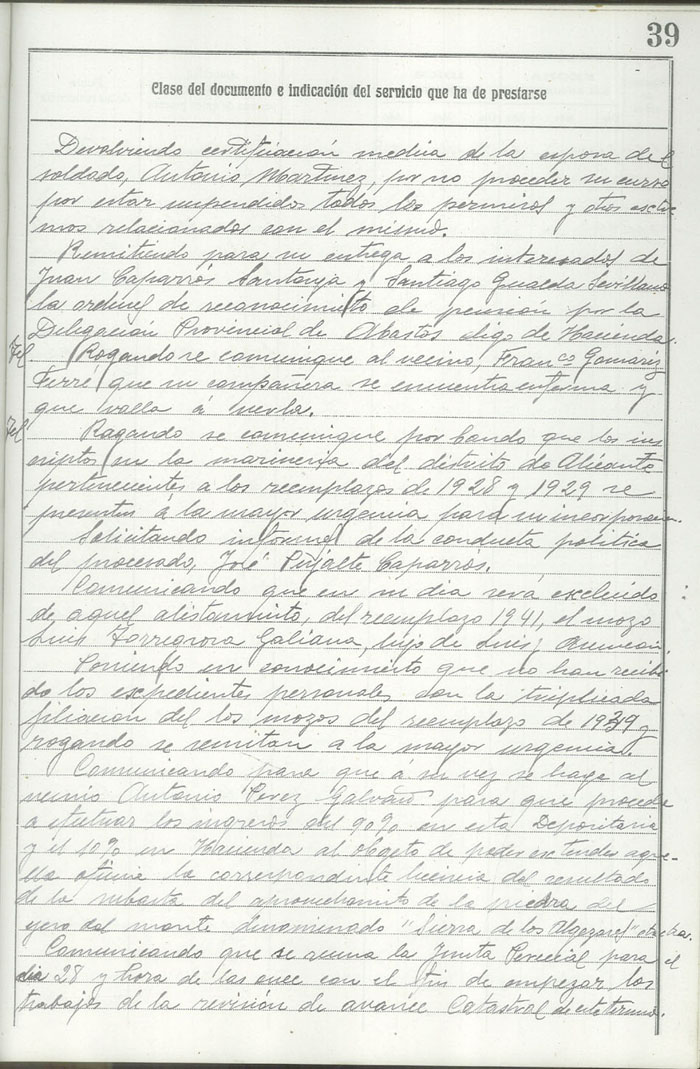 39
Clase del documento e indicación del servicio que ha de prestarse
Devolviendo certificación medica de la esposa del
soldado, Antonio Martinez, por no proceder su curso
por estar suspendidos todos los permisos y otros
mos relacionados con el mismo.
Remitiendo para su entrega a los interesados de
Juan Caparrós Santonja y Santiago Gualda Sevillano
la ordenes de reconocimito de pension por la
Delegacion Provincial de Abastos digo de Hacienda.
Tel. Rogando se comunique al vecino, Franco Gomariz
Ferré, que su compañera se encuentra enferma y
que valla á verla.
Tel Rogando se comunique por bando que los ins
criptos en la marineria del distrito de Alicante
pertenecientes a los reemplazos de 1928 y 1929 se
presenten á la mayor urgencia para su incorporacion.
Solicitando informes de la conducta politica
del procesado, José Pujalte Caparrós.
Comunicando que en su dia será excluido
de aquel alistamiento, del reemplazo 1941, el mozo
Luis Torregrosa Galiana, hijo de Luis y Asuncion.
Poniendo en conocimiento que no han recibi
do los expedientes personales con la triplicada
filiacion del los mozos del reemplazo de 1939 y
rogando se remitan a la mayor urgencia.
Comunicando para que á su vez se haga al
vecino Antonio Perez Galvañ para que proceda
a efectuar los ingresos del 90% en esta Depositaria
y el 10% en Hacienda al objeto de poder extender aque-
lla oficina la correspondiente licencia del resultado
de la subasta del aprovechamito de la piedra del
yeso del monte denominado "Sierra de los Algezares"
Comunicando que se reuna la Junta Pericial para el
dia 28 y hora de las once con el fin de empezar los
trabajos de la revisión de avance Catastral de este termino.